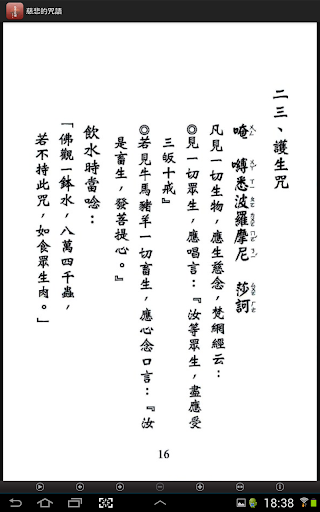 慈悲的咒語
二三、護生咒
唵 嚩悉波羅摩尼 莎訶
凡見一切生物，應生慈念，梵網經云：
◎見一切眾生，應唱言：『汝等眾生，盡應受
三皈十戒』
◎若見牛馬豬羊一切畜生，應心念口言：『汝
是畜生，發菩提心。』
飲水時當唸：
「佛觀一鉢水，八萬四千蟲，
若不持此咒，如食眾生肉。」
16
18:38